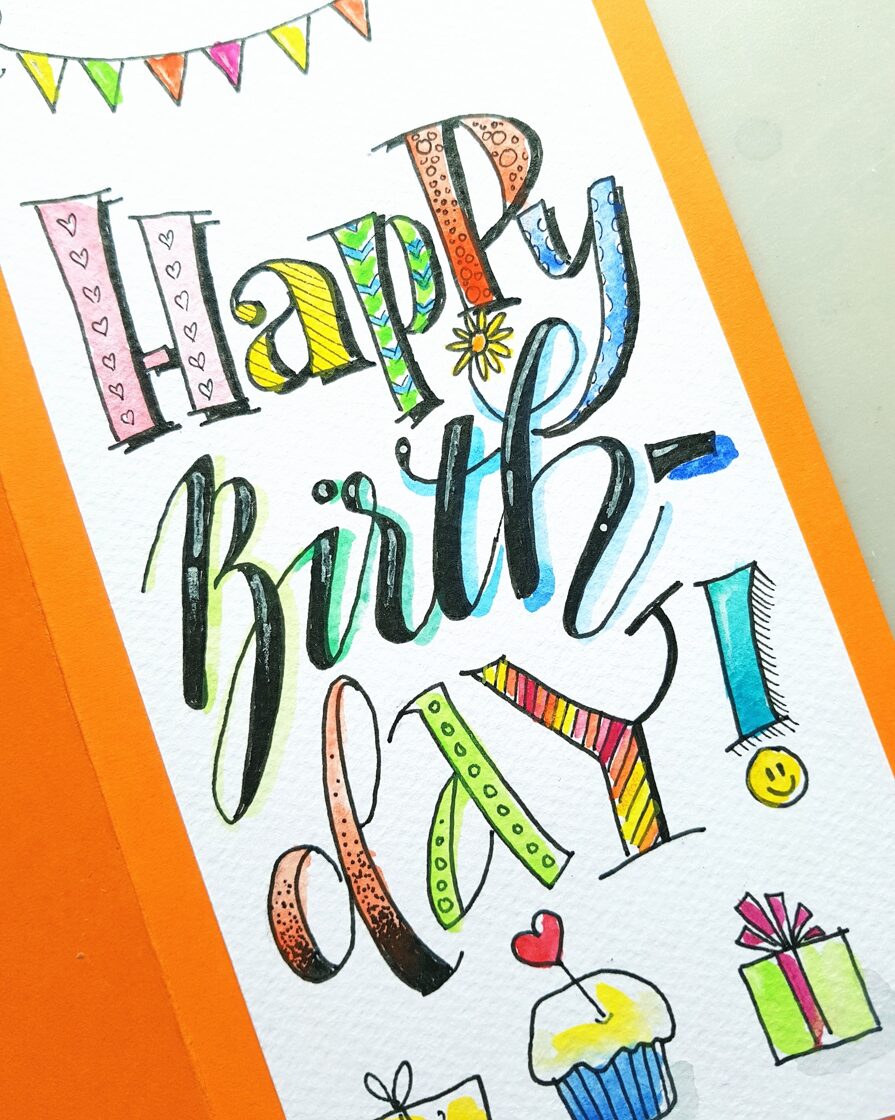 Happy
Birth-
day!